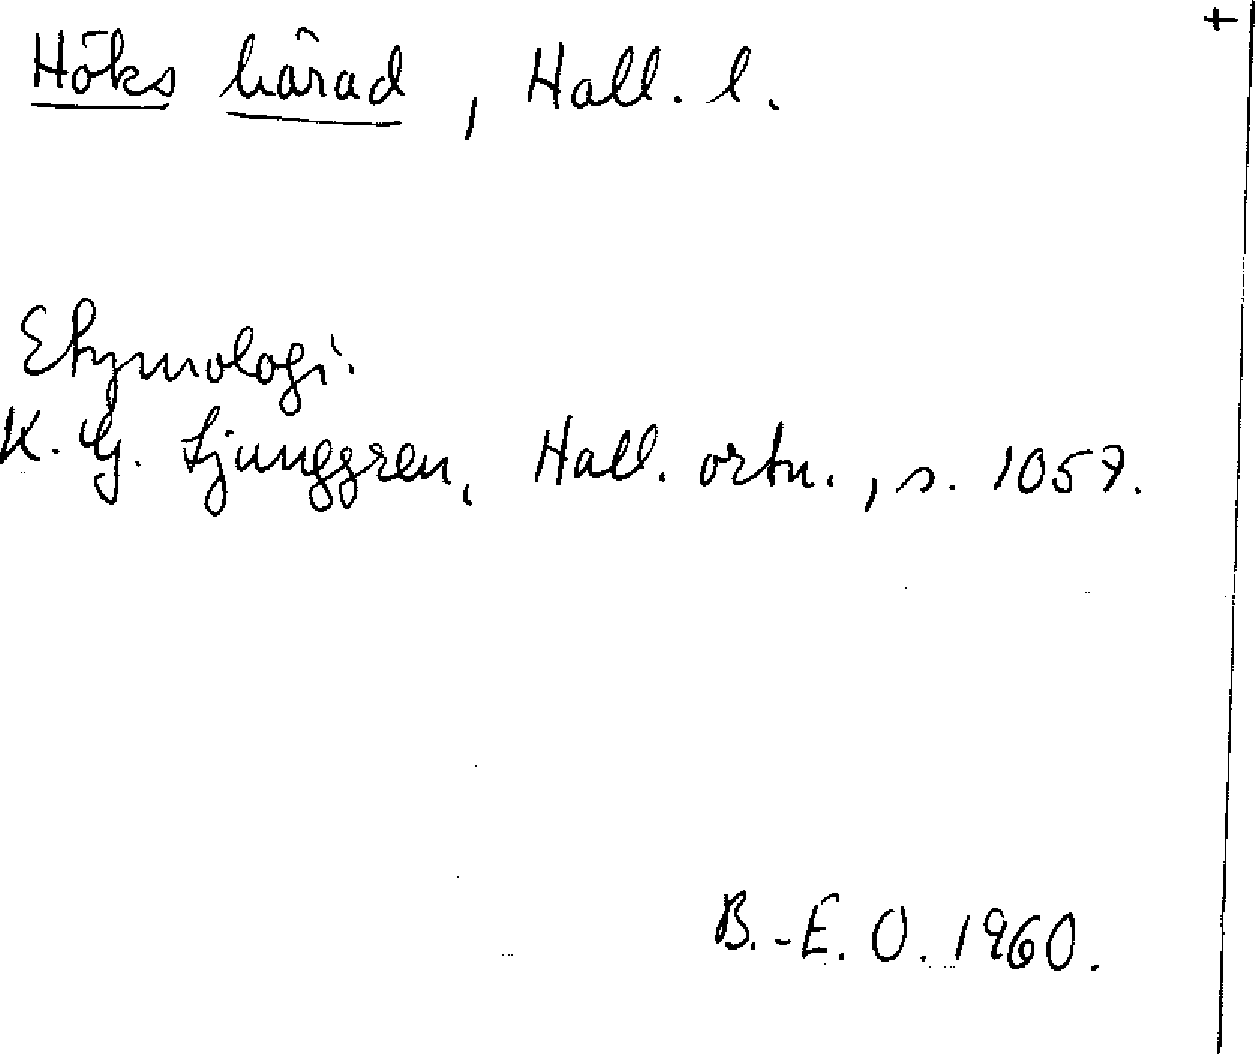 +
Höks härad, Hall. l.
Etymologi.
K. G. Ljunggren, Hall. ortn., s. 1057.
B.-E. O. 1960.